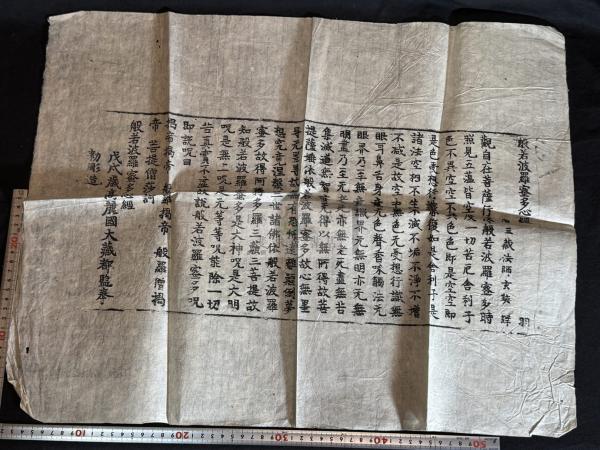 般若波羅蜜多心經 羽
三藏法師玄奘 譯
觀自在菩薩行深般若波羅蜜多時
照見五蘊皆空度一切苦厄舍利子
色不異空空不異色色即是空空即
是色受想行識亦復如是舍利子是
諸法空相不生不滅不垢不淨不增
不減是故空中無色无受想行識無
眼耳鼻舌身意无色聲香味觸法无
眼界乃至無意識界无無明亦无無
明盡乃至无老死亦無老死盡無苦
集滅道無智亦無得以無所得故菩
提薩埵依般若波羅蜜多故心無罣
㝵无罣㝵故無有恐怖遠離顛倒夢
想究竟涅槃三世諸佛依般若波羅
蜜多故得阿耨多羅三藐三菩提故
知般若波羅蜜多是大神呪是大明
呪是無上呪是无等等呪能除一切
苦真實不虛故說般若波羅蜜多呪
即說呪曰
揭帝揭帝 般羅揭帝 般羅僧揭
帝 菩提僧莎訶
般若波羅蜜多心經
戊戌歲高麗國大藏都監奉
勅彫造
10
20
30
40
50